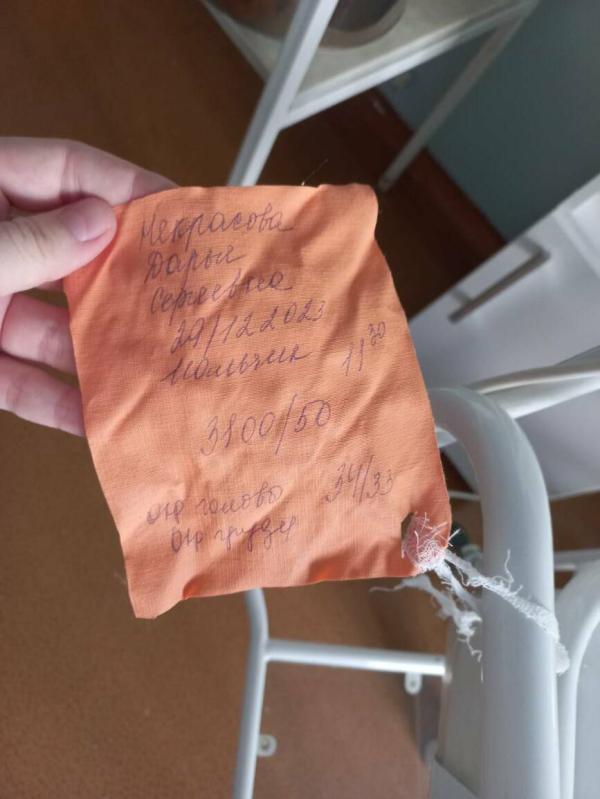 Некрасова
Дарья
Сергеевна
29/12 2023
Мальчик 11 30
3100/50
окр головы 34/33
окр груди